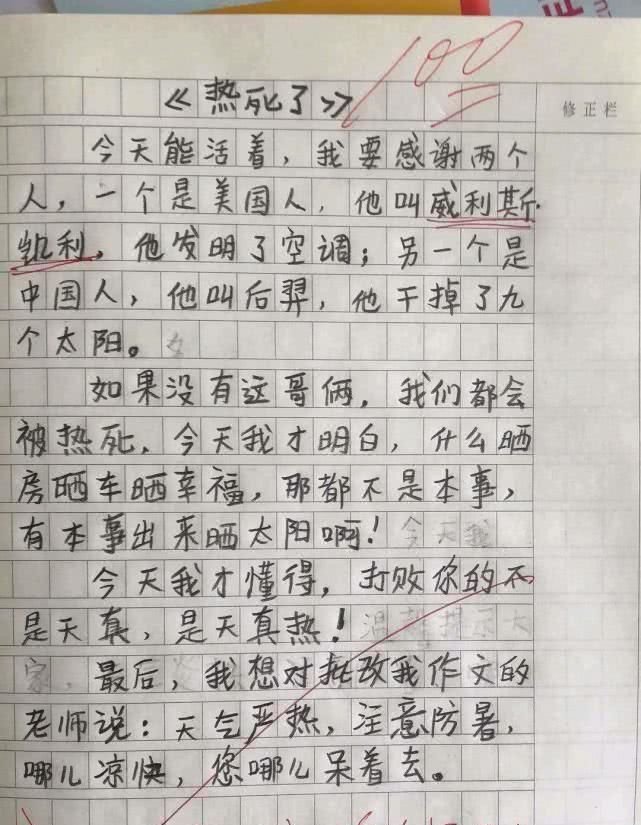 证
100
修正栏
《热死了》
今天能活着，我要感谢两个
人，一个是美国人，他叫威利斯·
凯利，他发明了空调；另一个是
中国人，他叫后羿，他干掉了九
个太阳。
如果没有这哥俩，我们都会
被热死，今天我才明白，什么晒
房晒车晒幸福，那都不是本事，
有本事出来晒太阳啊！今天我
今天我才懂得，打败你的不
是天真，是天真热！温馨提示大
家，最后，我想对批改我作文的
老师说：天气严热，注意防暑，
哪儿凉快，您哪儿呆着去。